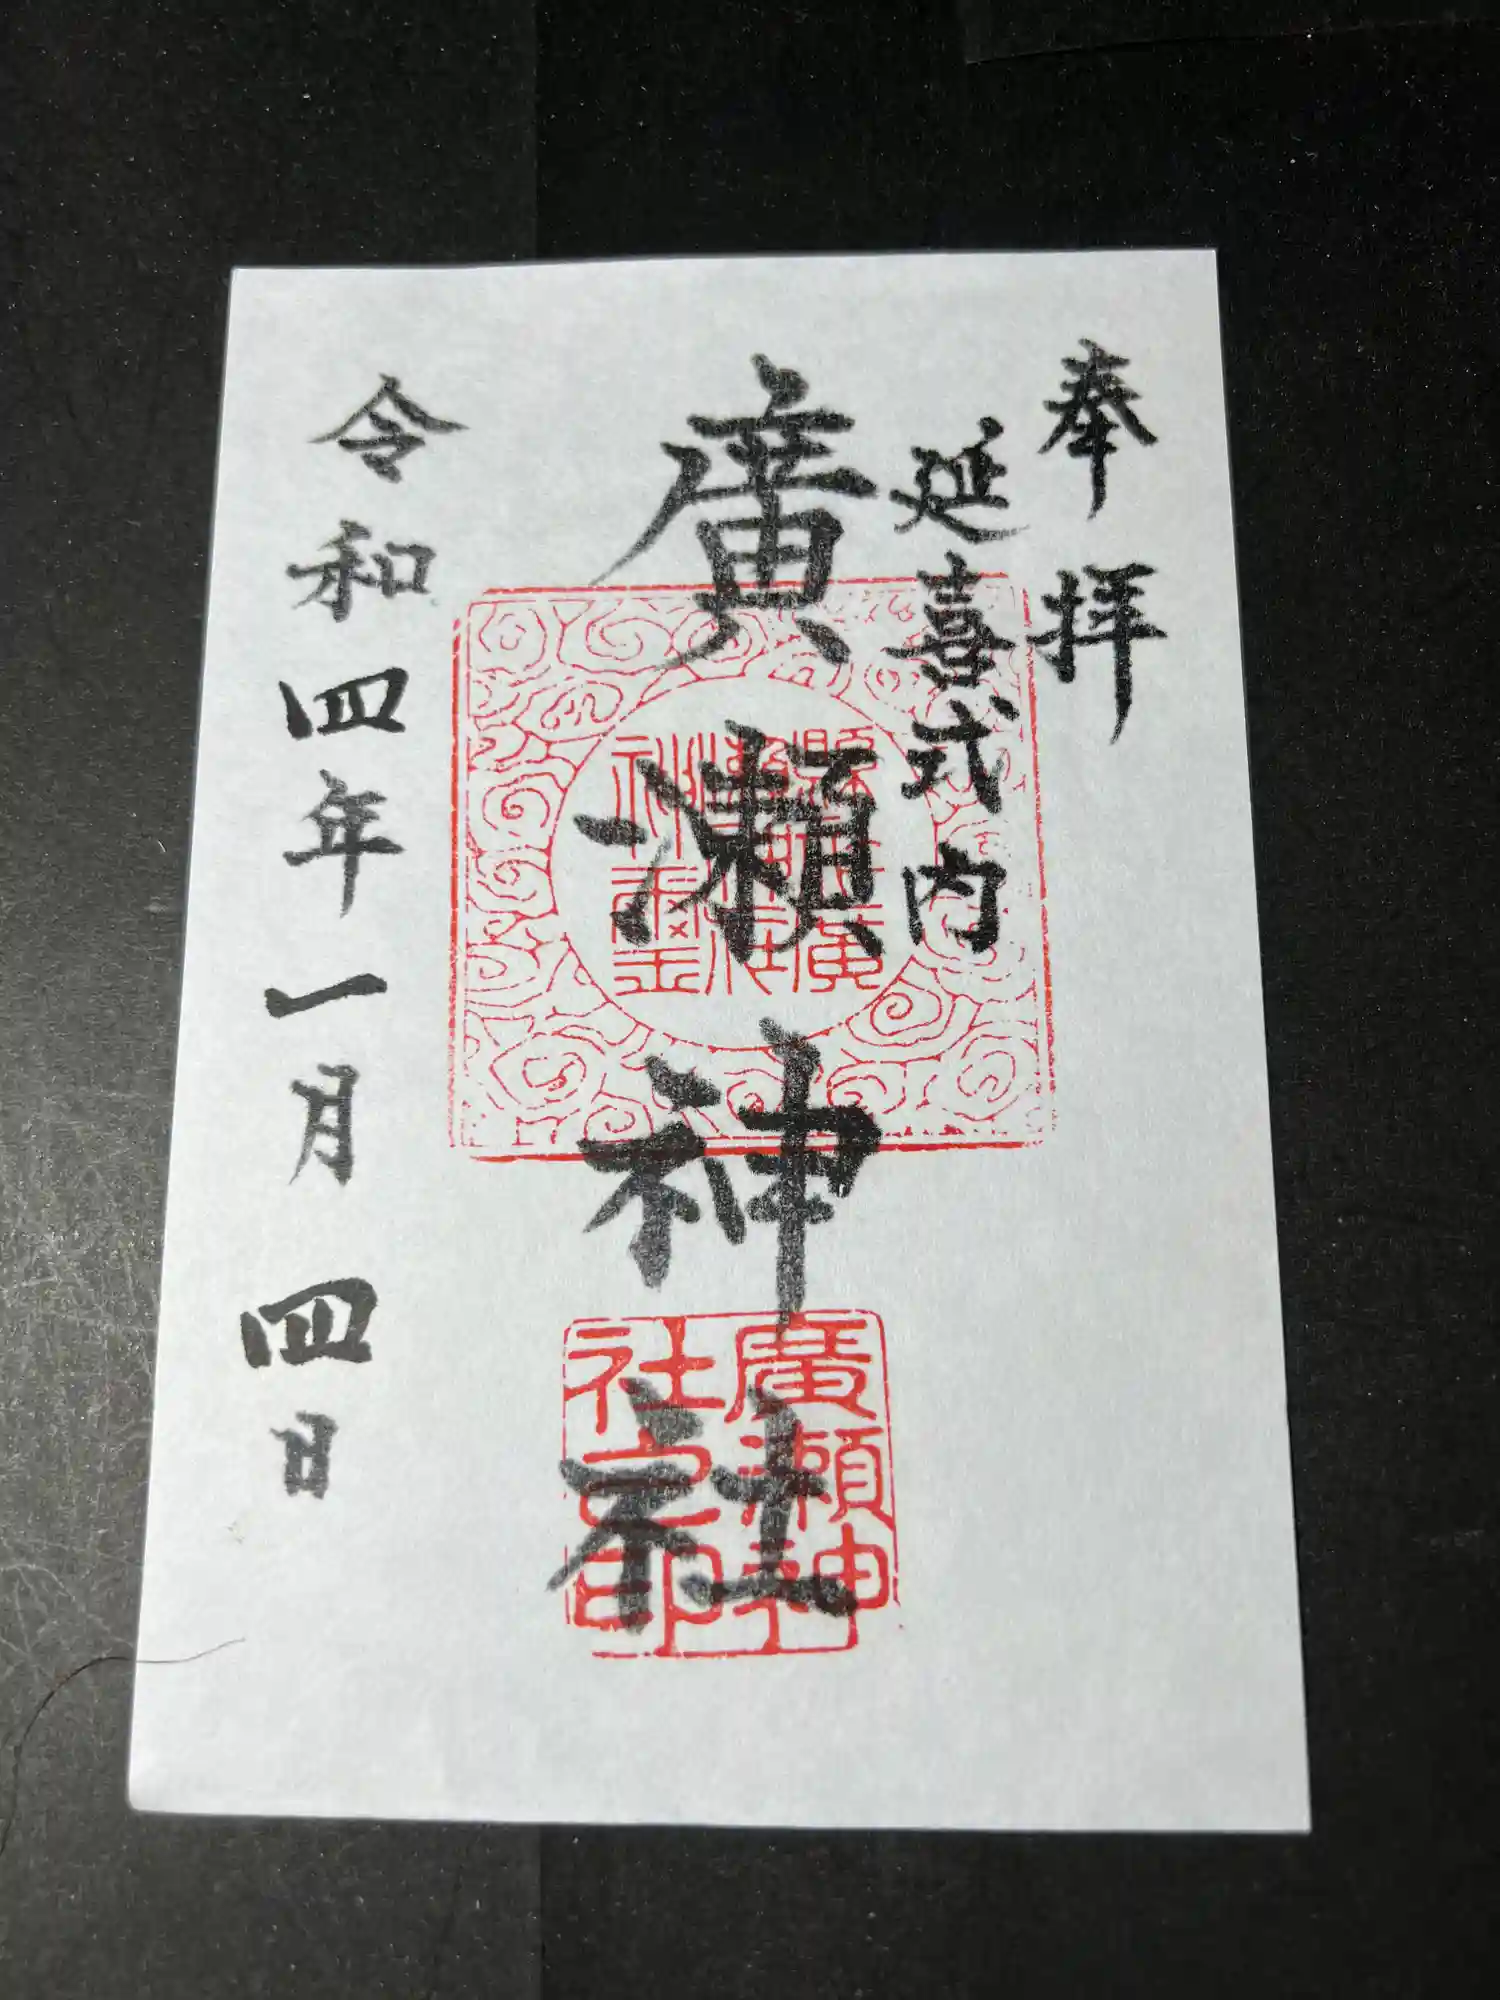 奉拝
延喜式内
廣瀬神社
廣瀬神
社之印
令和四年一月四日